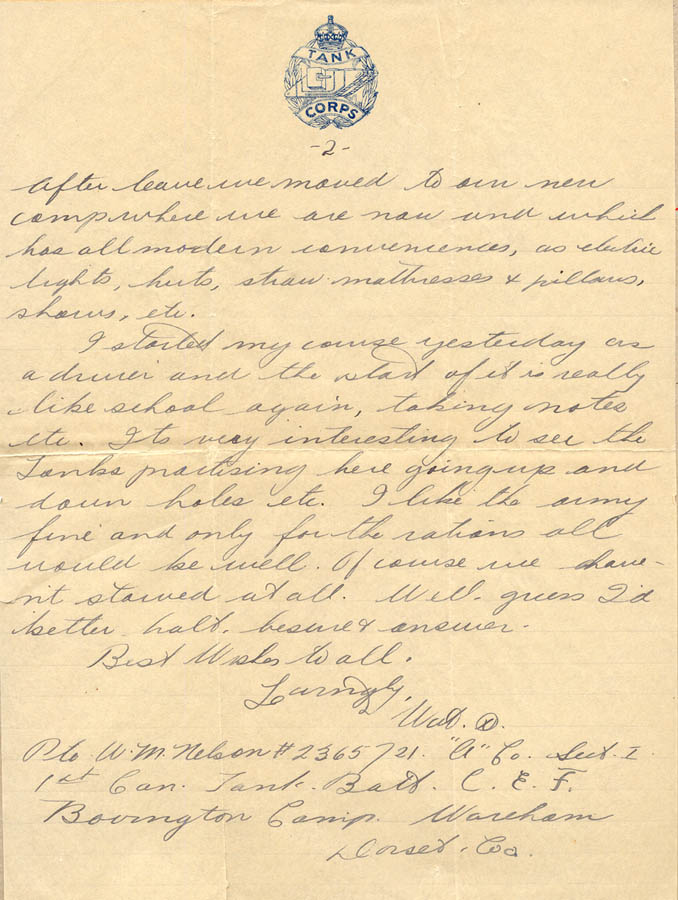 TANK
CORPS
-2-
After leave we moved to our new
camp where we are now and which
has all modern conveniences, as electric
lights, huts, straw mattresses & pillows,
shows, etc.
I started my course yesterday as
a driver and the start of it is really
like school again, taking notes
etc. Its very interesting to see the
Tanks practising here going up and
down holes etc. I like the army
fine and only for the rations all
would be well. Of course we have-
n't starved at all. Well guess I'd
better halt. be sure & answer.
Best Wishes to all.
Lovingly,
Walt. (x).
Pte W. M. Nelson # 2365721. "A" Co. Sect. I
1st Can. Tank. Batt. C. E. F.
Bovington Camp. Wareham
Dorset. Co.